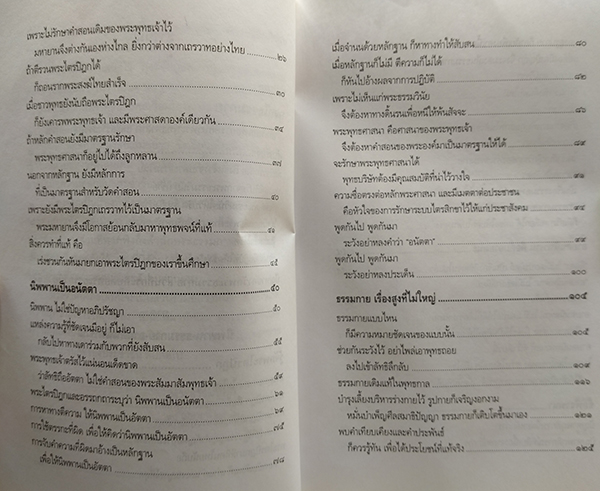 เพราะไม่รักษาคำสอนเดิมของพระพุทธเจ้าไว้
มหายานจึงต่างกันเองห่างไกล ยิ่งกว่าต่างจากเถรวาทอย่างไทย ๒๖
ถ้าตีรวนพระไตรปิฎกได้
ก็ถอนรากพระสงฆ์ไทยสำเร็จ ๓๐
เมื่อชาวพุทธยังนับถือพระไตรปิฎก
ก็ยังเคารพพระพุทธเจ้า และมีพระศาสดาองค์เดียวกัน ๓๔
ถ้าหลักคำสอนยังมีมาตรฐานรักษา
พระพุทธศาสนาก็อยู่ไปได้ถึงลูกหลาน ๓๗
นอกจากหลักฐาน ยังมีหลักการ
ที่เป็นมาตรฐานสำหรับวัดคำสอน ๔๐
เพราะยังมีพระไตรปิฎกเถรวาทไว้เป็นมาตรฐาน
พระมหายานจึงมีโอกาสย้อนกลับมาหาพุทธพจน์ที่แท้ ๔๔
สิ่งควรทำที่แท้ คือ
เร่งชวนกันหันมายกเอาพระไตรปิฎกของเราขึ้นศึกษา ๔๕
นิพพานเป็นอนัตตา ๕๐
นิพพาน ไม่ใช่ปัญหาอภิปรัชญา ๕๐
แหล่งความรู้ที่ชัดเจนมีอยู่ ก็ไม่เอา
กลับไปหาทางเดาร่วมกับพวกที่ยังสับสน ๕๕
พระพุทธเจ้าตรัสไว้แน่นอนเด็ดขาด
ว่าลัทธิถืออัตตา ไม่ใช่คำสอนของพระสัมมาสัมพุทธเจ้า ๕๙
พระไตรปิฎกและอรรถกถาระบุว่า นิพพานเป็นอนัตตา ๖๑
การหาทางตีความ ให้นิพพานเป็นอัตตา ๖๙
การใช้ตรรกะที่ผิด เพื่อให้คิดว่านิพพานเป็นอัตตา ๗๕
การจับคำความที่ผิดมาอ้างเป็นหลักฐาน
เพื่อให้นิพพานเป็นอัตตา ๗๘
เมื่อจำนนด้วยหลักฐาน ก็หาทางทำให้สับสน ๘๐
เมื่อหลักฐานก็ไม่มี ตีความก็ไม่ได้
ก็หันไปอ้างผลจากการปฏิบัติ ๘๒
เพราะไม่เห็นแก่พระธรรมวินัย
จึงต้องหาทางดิ้นรนเพื่อหนีให้พ้นสัจจะ ๘๖
พระพุทธศาสนา คือศาสนาของพระพุทธเจ้า
จึงต้องหาคำสอนของพระองค์มาเป็นมาตรฐานให้ได้ ๘๙
จะรักษาพระพุทธศาสนาได้
พุทธบริษัทต้องมีคุณสมบัติที่น่าไว้วางใจ ๙๑
ความซื่อตรงต่อหลักพระศาสนา และมีเมตตาต่อประชาชน
คือหัวใจของการรักษาระบบไตรสิกขาไว้ให้แก่ประชาสังคม ๙๔
พูดกันไป พูดกันมา
ระวังอย่าหลงคำว่า "อนัตตา" ๙๙
พูดกันไป พูดกันมา
ระวังอย่าหลงประเด็น ๑๐๐
ธรรมกาย เรื่องสูงที่ไม่ใหญ่ ๑๐๕
ธรรมกายแบบไหน
ก็มีความหมายชัดเจนของแบบนั้น ๑๐๕
ช่วยกันระวังไว้ อย่าไพล่เอาพุทธถอย
ลงไปเข้าลัทธิลึกลับ ๑๐๙
ธรรมกายเดิมแท้ในพุทธกาล ๑๑๖
บำรุงเลี้ยงบริหารร่างกายไว้ รูปกายก็เจริญงอกงาม
หมั่นบำเพ็ญศีลสมาธิปัญญา ธรรมกายก็เติบโตขึ้นมาเอง ๑๒๑
พบคำเทียบเคียงและคำประพันธ์
ก็ควรรู้ทัน เพื่อได้ประโยชน์ที่แท้จริง ๑๒๕